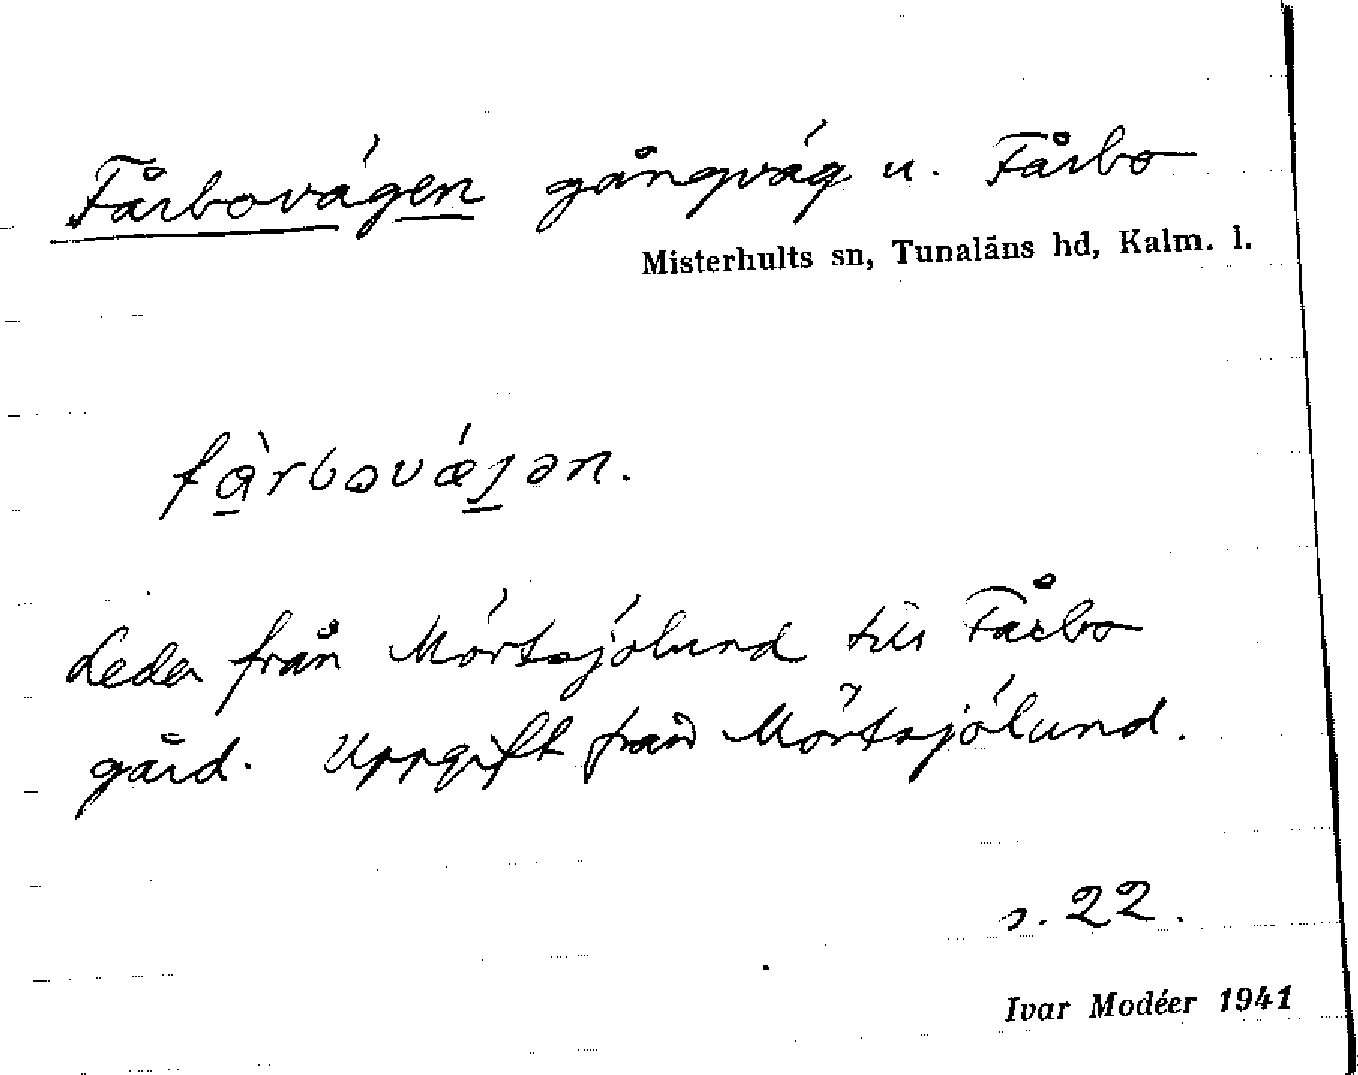 Fårbovägen gångväg u. Fårbo
Misterhults sn, Tunaläns hd, Kalm. l.
fàrbovǽȷən.
Leder från Mörtsjölund till Fårbo
gård. Uppgift från Mörtsjölund.
s. 22.
Ivar Modéer 1941